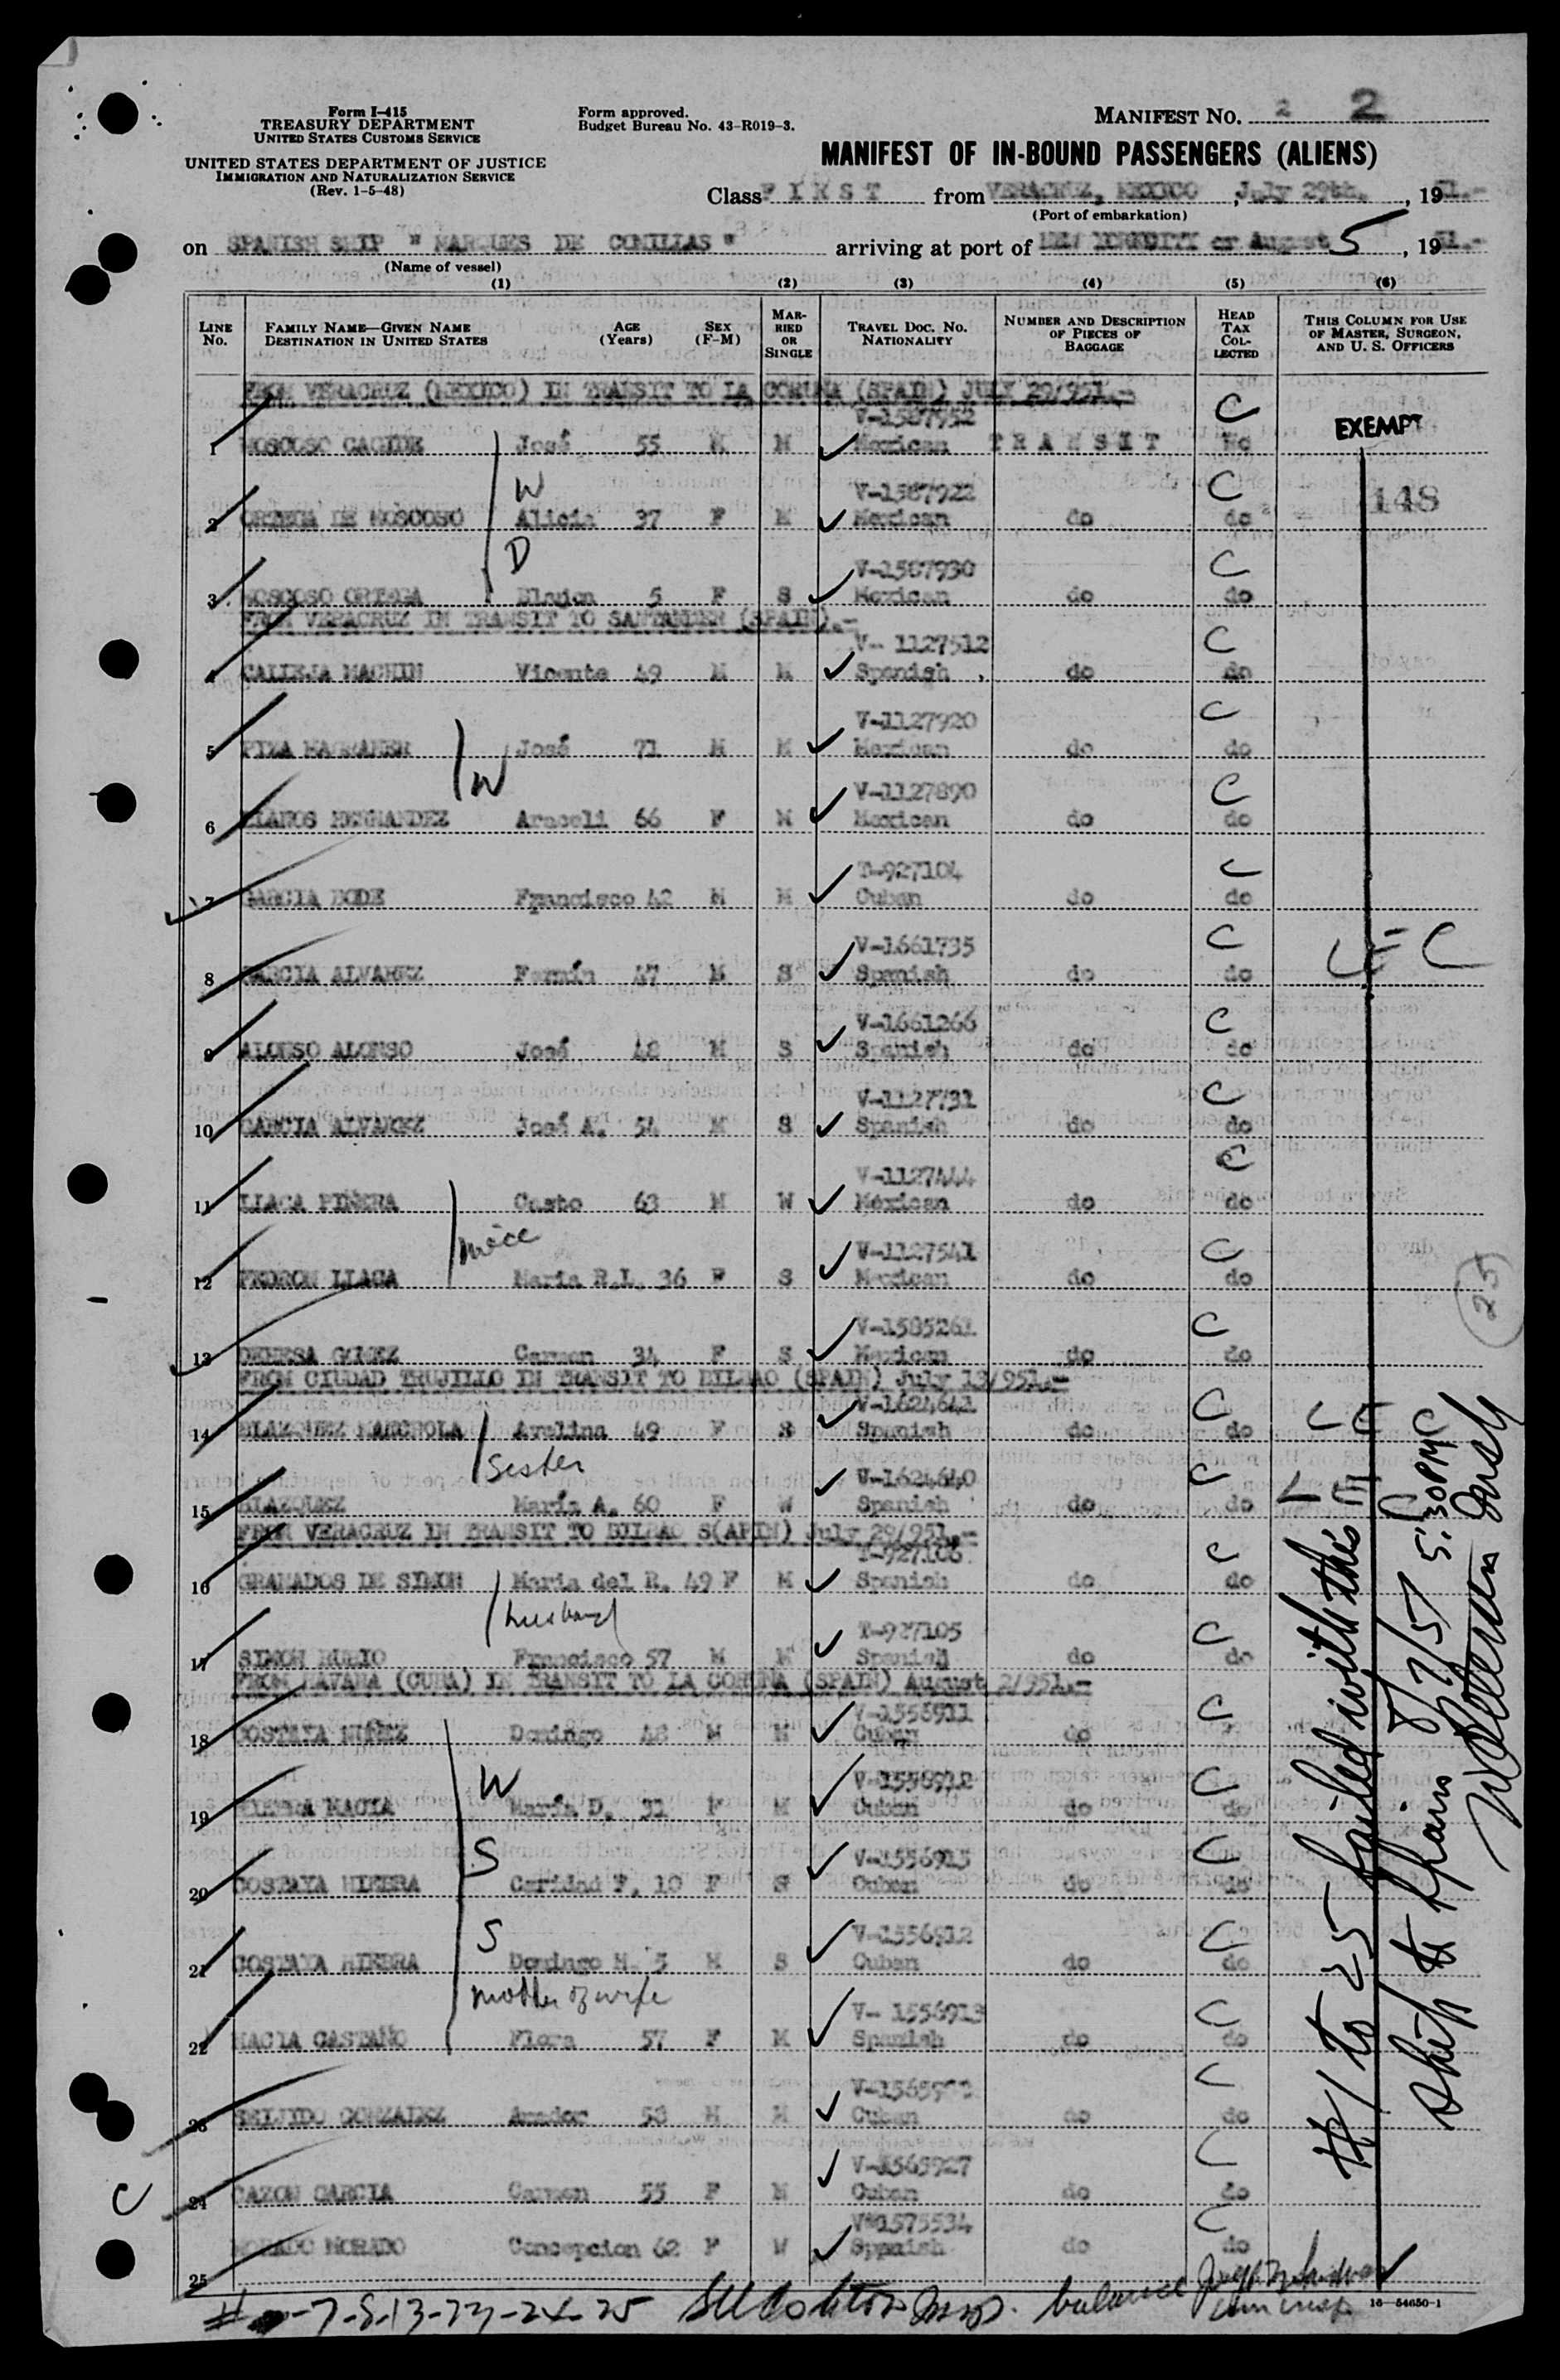 Form I-415
TREASURY DEPARTMENT
UNITED STATES CUSTOMS SERVICE
UNITED STATES DEPARTMENT OF JUSTICE
IMMIGRATION AND NATURALIZATION SERVICE
(Rev. 1-5-48)
Form approved.
Budget Bureau No. 43-R019-3.
MANIFEST No. 2 2
MANIFEST OF IN-BOUND PASSENGERS (ALIENS)
Class FIRST from VERACRUZ, MEXICO, July 29th., 1951.-
(Port of embarkation)
on SPANISH SHIP " MARQUES DE COMILLAS " arriving at port of NEW YORKCITY or August 5, 1951.-
(Name of vessel)
(1) (2) (3) (4) (5) (6)
LINE No. FAMILY NAME—GIVEN NAME DESTINATION IN UNITED STATES AGE (Years) SEX (F-M) MARRIED OR SINGLE TRAVEL DOC. NO. NATIONALITY NUMBER AND DESCRIPTION OF PIECES OF BAGGAGE HEAD TAX COLLECTED THIS COLUMN FOR USE OF MASTER, SURGEON, AND U. S. OFFICERS
FROM VERACRUZ (MEXICO) IN TRANSIT TO LA CORUÑA (SPAIN) JULY 29/951.-
V-1587932 C EXEMPT
1 MOSCOSO CAGIDE José 55 M M Mexican TRANSIT No
W V-1587922 C 148
2 ORTEGA DE MOSCOSO Alicia 37 F M Mexican do do
D V-1587930 C
3 MOSCOSO ORTEGA 5 F S Mexican do do
FROM VERACRUZ IN TRANSIT TO SANTANDER (SPAIN).-
V- 1127512 C
4 CALLEJA MACHIN Vicente 49 M M Spanish do do
V-1127920 C
5 PIZA José 71 M M Mexican do do
W V-1127890 C
6 LLANOS HERNANDEZ Araceli 66 F M Mexican do do
T-927104 C
7 GARCIA DODE Francisco 42 M M Cuban do do
V-1661735 C
8 GARCIA ALVAREZ Fermín 47 M S Spanish do do
V-1661266 C
9 ALONSO ALONSO José 48 M S Spanish do do
V-1127731 C
10 GARCIA ALVAREZ José A. 54 M S Spanish do do
V-1127444 C
11 LLACA PIÑERA Casto 63 M W Mexican do do
niece V-1127541 C
12 PEDRON LLACA Maria R.L. 36 F S Mexican do do
V-1585261 C
13 DEHESA GOMEZ Carmen 34 F S Mexican do do
FROM CIUDAD TRUJILLO IN TRANSIT TO BILBAO (SPAIN) July 13/951.-
V-1624641 C
14 BLAZQUEZ Avelina 49 F S Spanish do do
Sister V-1624640 C
15 BLAZQUEZ María A. 60 F W Spanish do do
FROM VERACRUZ IN TRANSIT TO BILBAO S(APIN) July 29/951.-
T-927106 C
16 GRANADOS DE SIMON Maria del R. 49 F M Spanish do do
husband T-927105 C
17 SIMON RUBIO Francisco 57 M M Spanish do do
FROM HAVANA (CUBA) IN TRANSIT TO LA CORUÑA (SPAIN) August 2/951.-
V-1556911 C
18 COSTAYA NUÑEZ Domingo 48 M M Cuban do
W C
19 MACIA María D. 31 F M Cuban do do
S V-1556915 C
20 COSTAYA Caridad F. 10 F S Cuban do do
S V-1556912 C
21 COSTAYA Domingo M. 5 M S Cuban do do
mother of wife V- 1556913 C
22 MACIA CASTAÑO Flora 57 F M Spanish do do
C
23 GONZALEZ Amador 58 M M Cuban do do
C V-1565927 C
24 CAZON GARCIA Carmen 55 F M Cuban do do
1575534 C
25 MORADO MORADO Concepcion 62 F W Sppaish do do
#1 to 25 Sailed with this
Ship to Spain 8/7/51 5:30PM
25
-7-8-13-23-24-25 Insp. balance
16—54650-1